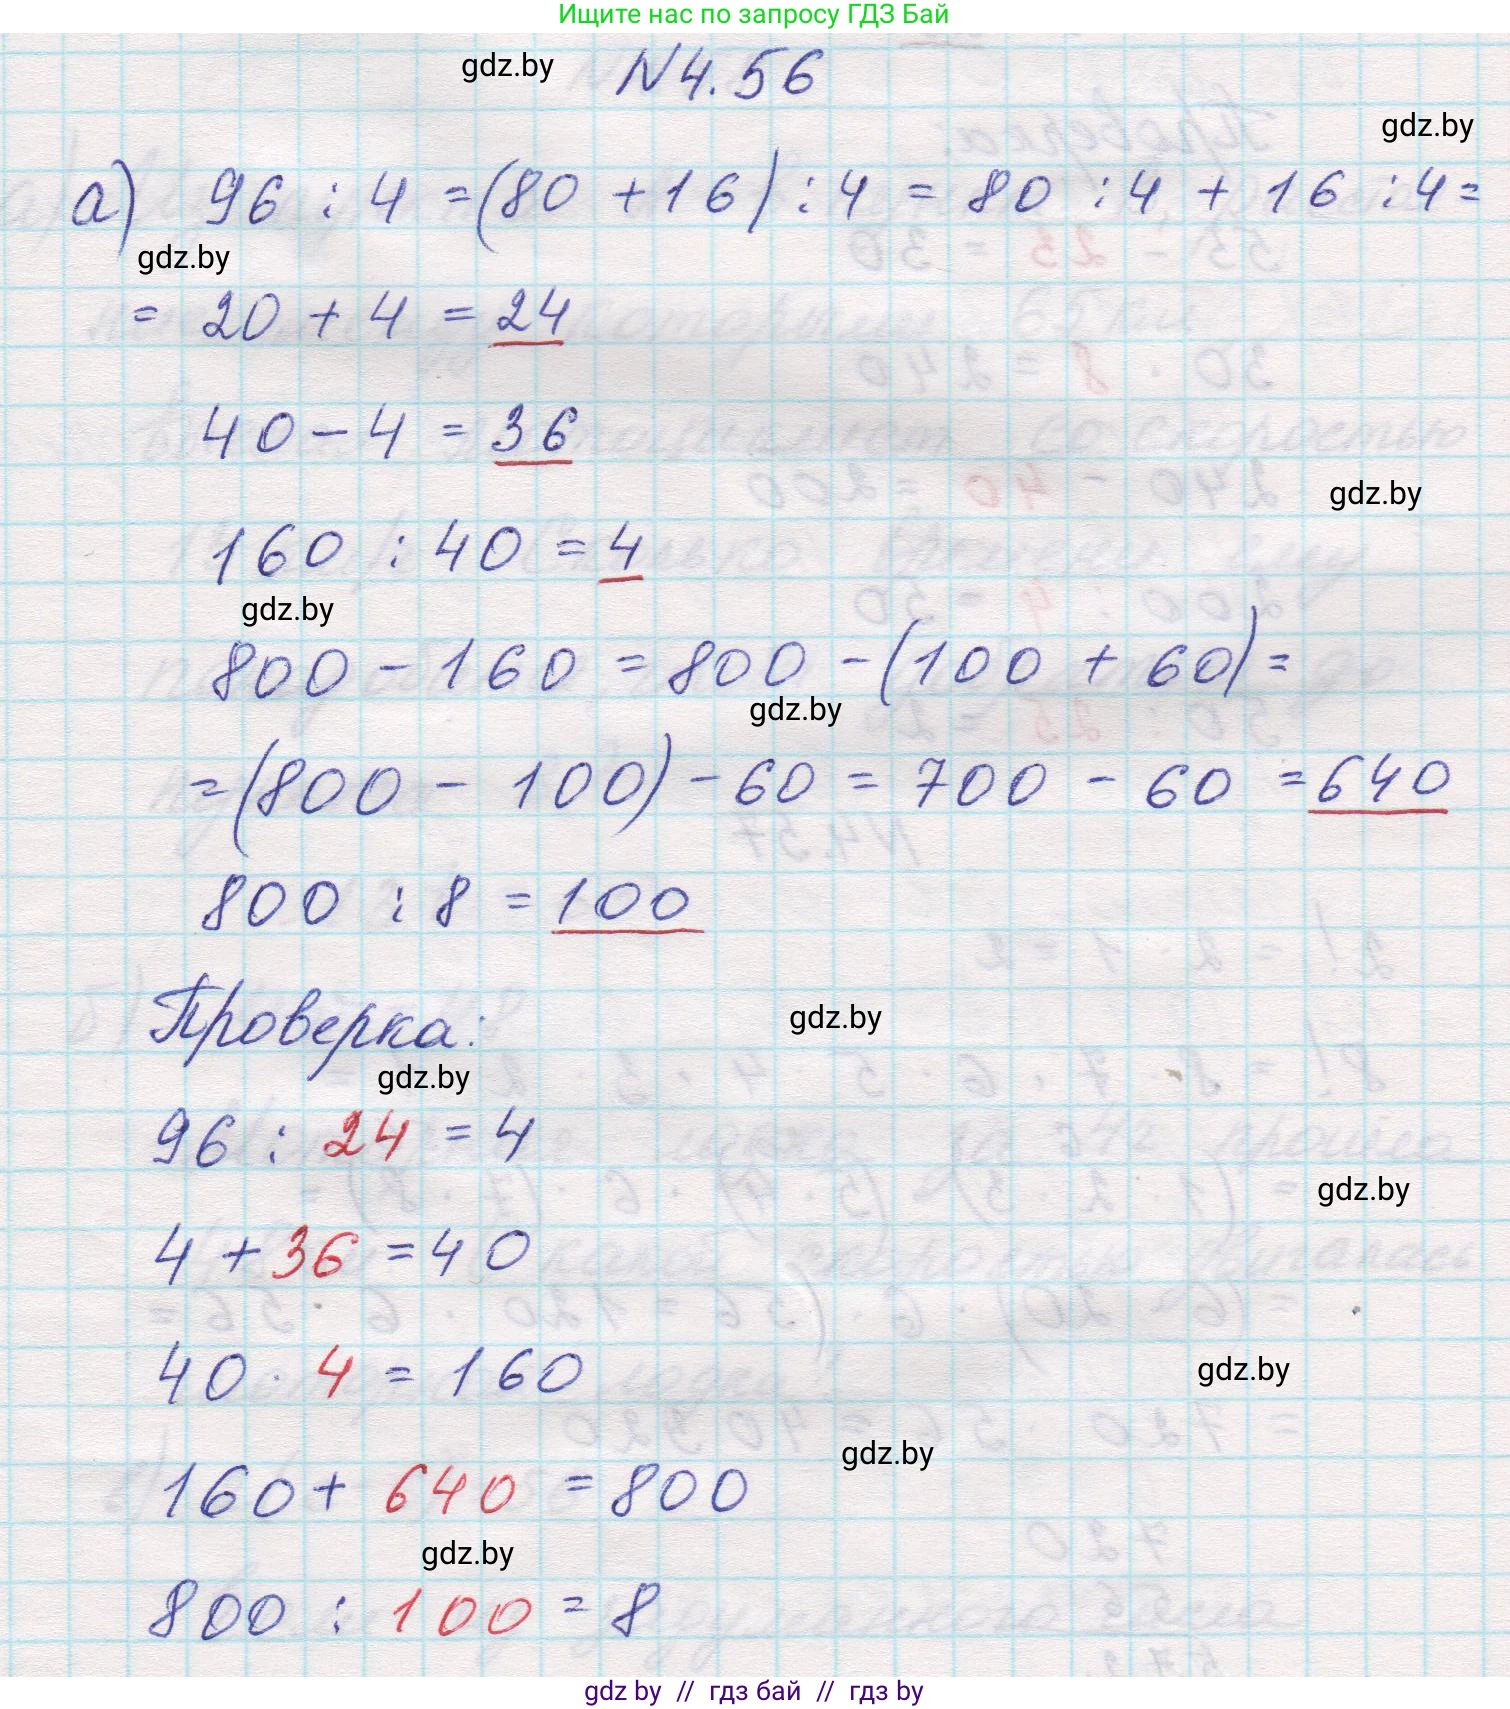 Ищите нас по запросу ГДЗ Бай
gdz.by
N4.56
gdz.by
а) 96 : 4 = (80 + 16) : 4 = 80 : 4 + 16 : 4 =
gdz.by
= 20 + 4 = 24
40 - 4 = 36
gdz.by
160 : 40 = 4
gdz.by
800 - 160 = 800 - (100 + 60) =
gdz.by
= (800 - 100) - 60 = 700 - 60 = 640
800 : 8 = 100
gdz.by
Проверка:
gdz.by
96 : 24 = 4
gdz.by
4 + 36 = 40
40 · 4 = 160
gdz.by
gdz.by
160 + 640 = 800
gdz.by
800 : 100 = 8
gdz by // гдз бай // гдз by